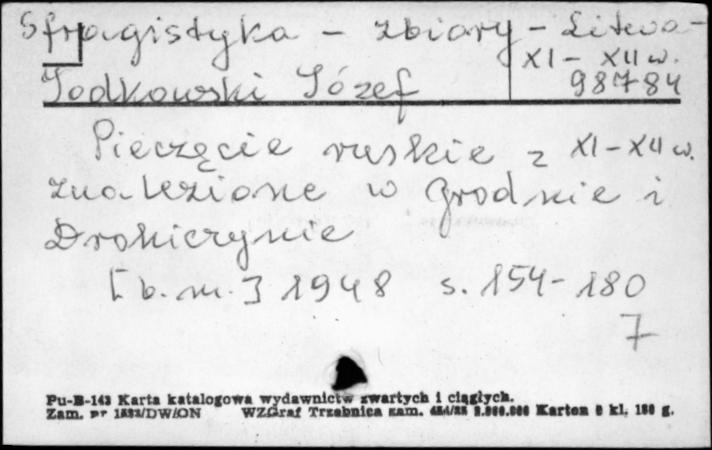 Sfragistyka - zbiory - Litwa -
XI - XII w.
98784
Jodkowski Józef
Pieczęcie ruskie z XI - XII w.
znalezione w Grodnie i
Drohiczynie
[b.m.] 1948 s. 154-180
7
Pu-B-143 Karta katalogowa wydawnictw zwartych i ciągłych.
Zam. nr /DW/ON WZGraf Trzebnica zam. Karton 0 kl. 180 g.